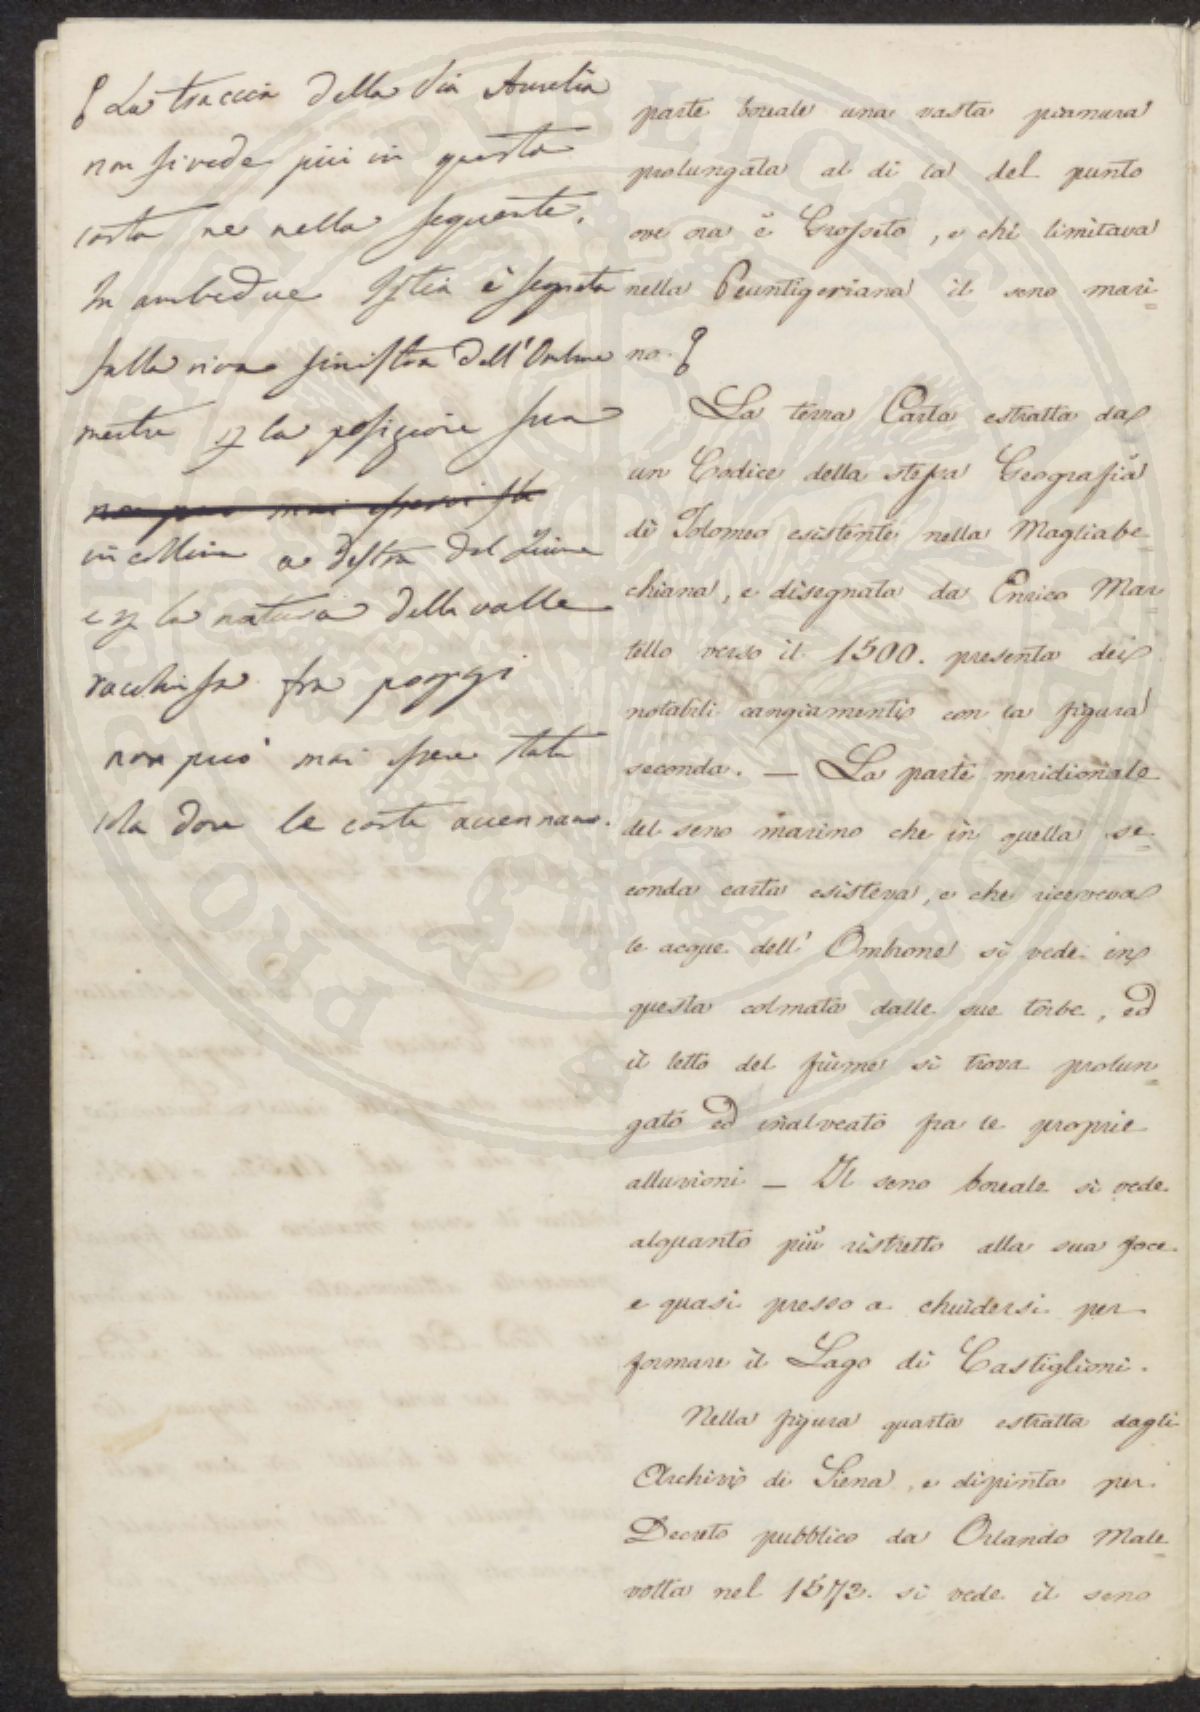 La traccia della Via Aurelia
non si vede più in questa
carta ne nella seguente.
In ambedue Istia è segnata
sulla riva sinistra dell'Ombrone
mentre p la posizione sua
in collina a destra del fiume
e p la natura della valle
racchiusa fra poggi
non può mai essere stata
colà dove le carte accennano.
parte boreale una vasta pianura
prolungata al di la del punto
ove ora è Grosseto, e chi limitava
nella Peuntigeriana il seno mari=
no.
La terza Carta estratta da
un Codice della stessa Geografia
di Tolomeo esistente nella Magliabe=
chiana, e disegnata da Enrico Mar=
tello verso il 1500. presenta dei
notabili cangiamenti con la figura
seconda. — La parte meridionale
del seno marino che in quella se=
conda carta esisteva, e che riceveva
le acque dell' Ombrone si vede in
questa colmata dalle sue torbe, ed
il letto del fiume si trova prolun=
gato ed inalveato fra le proprie
alluvioni — Il seno boreale si vede
alquanto più ristretto alla sua foce
e quasi presso a chiudersi per
formare il Lago di Castiglioni.
Nella figura quarta estratta dagli
Archivi di Siena, e dipinta per
Decreto pubblico da Orlando Male=
volta nel 1573. si vede il seno